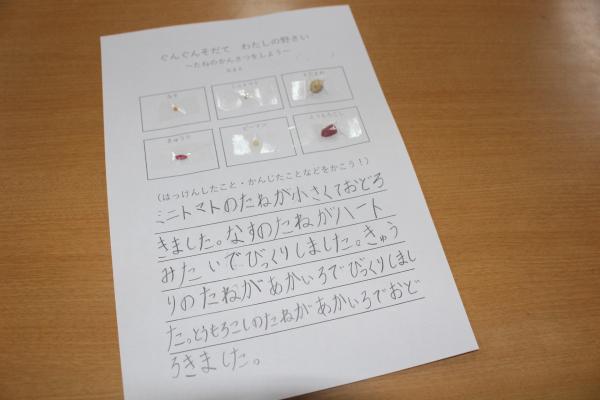 ぐんぐんそだて わたしの野さい
～たねのかんさつをしよう～
なす
ミニトマト
えだまめ
きゅうり
ピーマン
とうもろこし
(はっけんしたこと・かんじたことなどをかこう!)
ミニトマトのたねが小さくておどろ
きました。なすのたねがハート
みたいでびっくりしました。きゅう
りのたねがあかいろでびっくりしまし
た。とうもろこしのたねがあかいろでおど
ろきました。